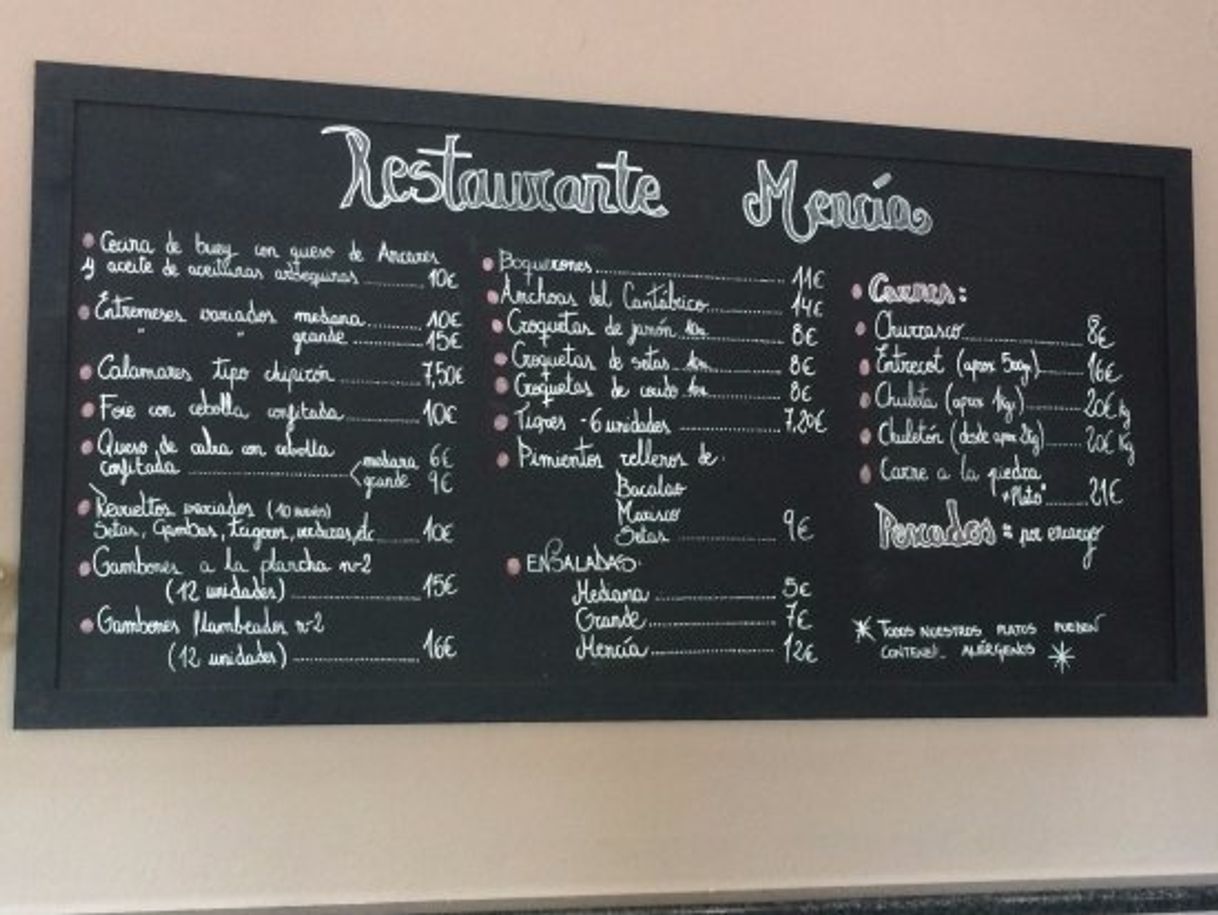 Restaurante Mencía
Cecina de buey con queso de Ancares
y aceite de aceitunas arbequinas ........ 10€
Entremeses variados mediana ........ 10€
" " grande ........ 15€
Calamares tipo chipirón ........ 7,50€
Foie con cebolla confitada ........ 10€
Queso de cabra con cebolla
confitada ........ mediana 6€
grande 9€
Revueltos variados (10 )
Setas, Gambas, trigueros, verduras, etc ........ 10€
Gambones a la plancha nº2
(12 unidades) ........ 15€
Gambones flambeados nº2
(12 unidades) ........ 16€
Boquerones ........ 11€
Anchoas del Cantábrico ........ 14€
Croquetas de jamón ........ 8€
Croquetas de setas ........ 8€
Croquetas de ........ 8€
Tigres - 6 unidades ........ 7,20€
Pimientos rellenos de:
Bacalao
Marisco
Setas ........ 9€
ENSALADAS:
Mediana ........ 5€
Grande ........ 7€
Mencía ........ 12€
Carnes:
Churrasco ........ 8€
Entrecot (aprox 500g) ........ 16€
Chuleta (aprox 1kg) ........ 20€ kg
Chuletón (desde aprox 2kg) ........ 20€ Kg
Carne a la piedra
"Plato" ........ 21€
Pescados = por encargo
* TODOS NUESTROS PLATOS PUEDEN
CONTENER ALÉRGENOS *